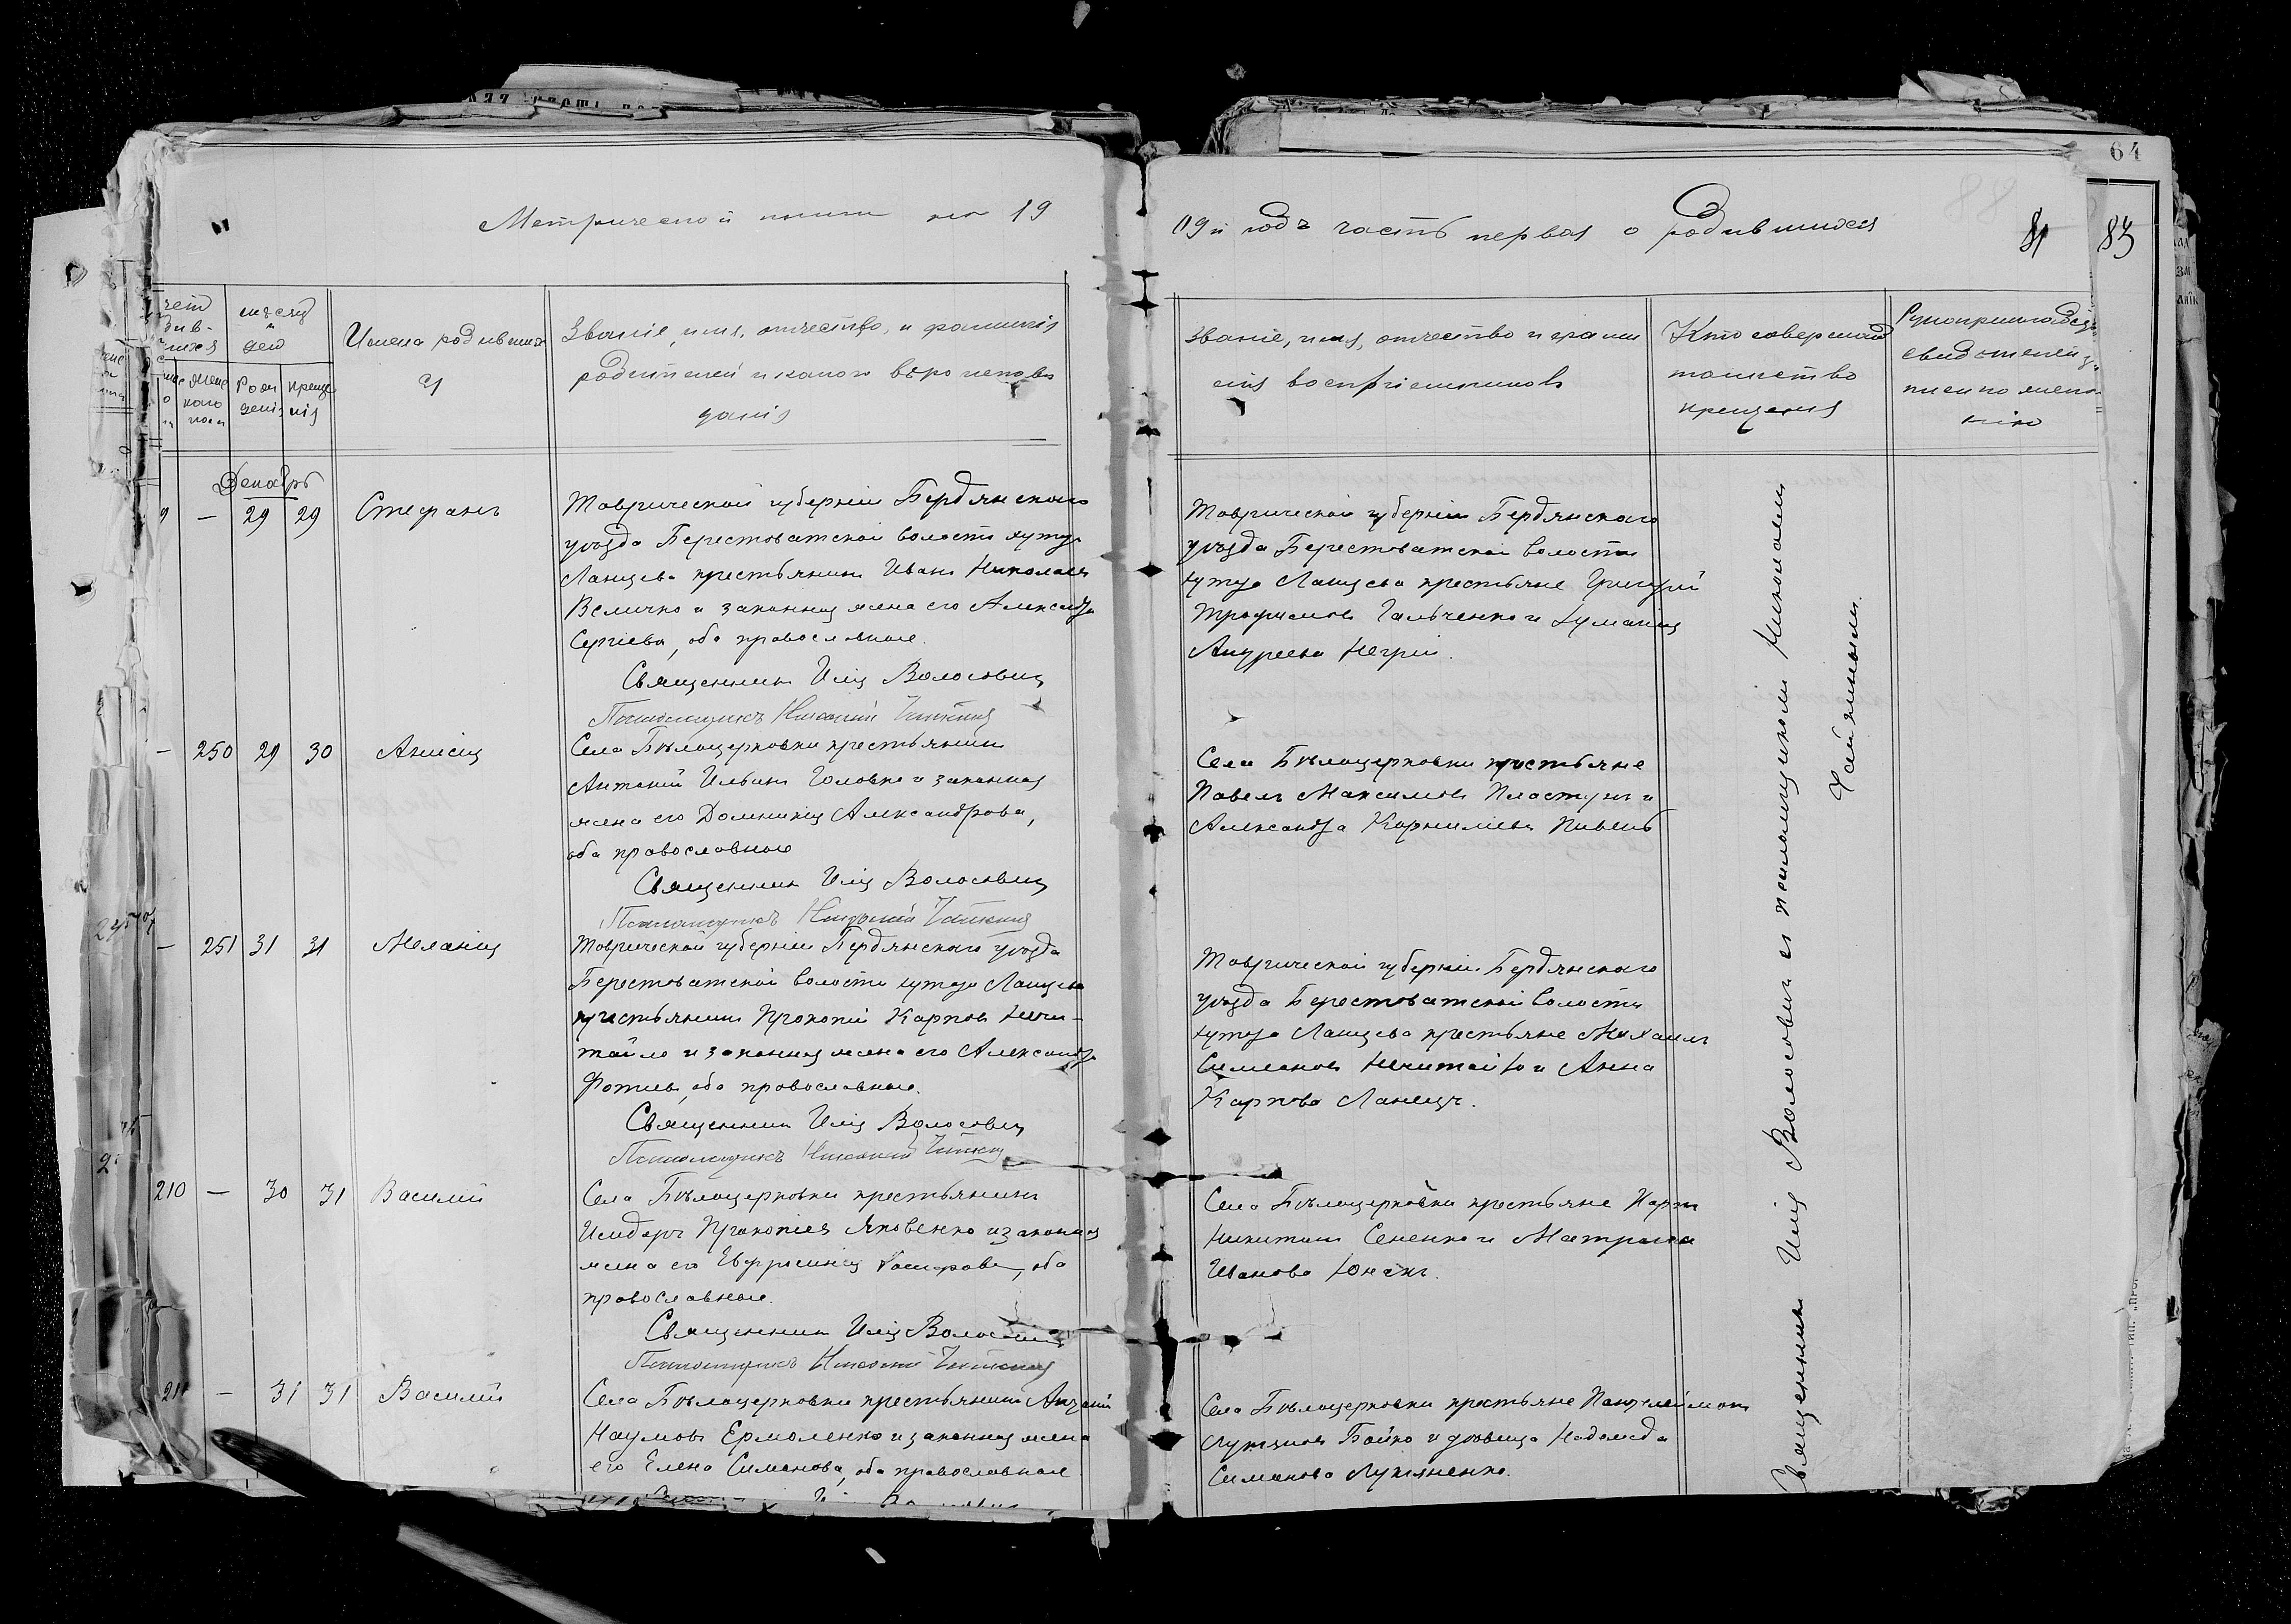 64
Метрической книги на 19
09й годъ часть первая о родившихся
81 83
Имена родившихся
Званіе, имя, отчество, и фамилія
родителей и какого вѣроисповѣ
данія
Званіе, имя, отчество и фами
лія воспріемниковъ
Кто совершалъ
таинство
крещенія
Рукоприкладство
свидѣтелей за
писи по жела
нію
мѣсяцъ
и
день
Женс
каго
пола
Рож
денія
Креще
нія
Декабрь
9 — 29 29 Стефанъ
Таврической губерніи Бердянскаго
уѣзда Берестоватской волости хутора
Ланцева крестьянинъ Иванъ Николаевъ
Величко и законная жена его Александра
Сергіева, оба православные.
Священникъ Илія Волосович
Псаломщикъ Николай
Таврической губерніи Бердянскаго
уѣзда Берестоватской волости
хутора Ланцева крестьяне Григорій
Трофимовъ Гальченко и
Андреева Негрій.
— 250 29 30 Анисія
Села Бѣлоцерковки крестьянинъ
Антоній Ильинъ Головко и законная
жена его Домникія Александрова,
оба православные
Священникъ Илія Волосович
Псаломщикъ Николай
Села Бѣлоцерковки крестьяне
Павелъ Максимовъ Пластунъ и
Александра Корниліева Пивень
— 251 31 31 Меланія
Таврической губерніи Бердянскаго уѣзда
Берестоватской волости хутора Ланцева
крестьянинъ Прокопій Карповъ Нечи-
тайло и законная жена его Александра
Фотіева, оба православные.
Священникъ Илія Волосович
Псаломщикъ Николай
Таврической губерніи Бердянскаго
уѣзда Берестоватской волости
хутора Ланцева крестьяне Михаилъ
Симеоновъ Нечитайло и Анна
Карпова Ланецъ.
210 — 30 31 Василій
Села Бѣлоцерковки крестьянинъ
Исидоръ Прокопіевъ Яковенко и законная
жена его Евфросинія, оба
православные.
Священникъ Илія Волосович
Псаломщикъ Николай
Села Бѣлоцерковки крестьяне Карпъ
Никитинъ Сененко и Матрона
Иванова Юначъ.
211 — 31 31 Василій
Села Бѣлоцерковки крестьянинъ
Наумовъ Ермоленко и законная жена
его Елена Симонова, оба православные
Села Бѣлоцерковки крестьяне Пантелеймонъ
Лукьяновъ Бойко и дѣвица Надежда
Симонова Лукьяненко.
Священникъ Илія Волосович съ псаломщикомъ Николаемъ